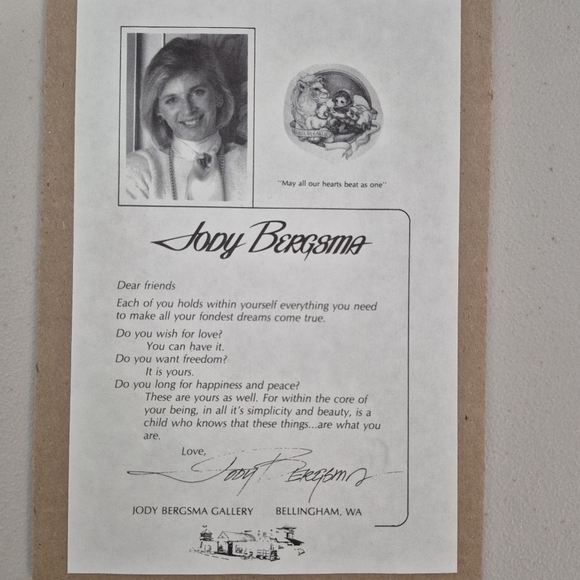 "May all our hearts beat as one"
JODY BERGSMA
Dear friends
Each of you holds within yourself everything you need
to make all your fondest dreams come true.
Do you wish for love?
You can have it.
Do you want freedom?
It is yours.
Do you long for happiness and peace?
These are yours as well. For within the core of
your being, in all it's simplicity and beauty, is a
child who knows that these things...are what you
are.
Love,
Jody Bergsma
JODY BERGSMA GALLERY BELLINGHAM, WA